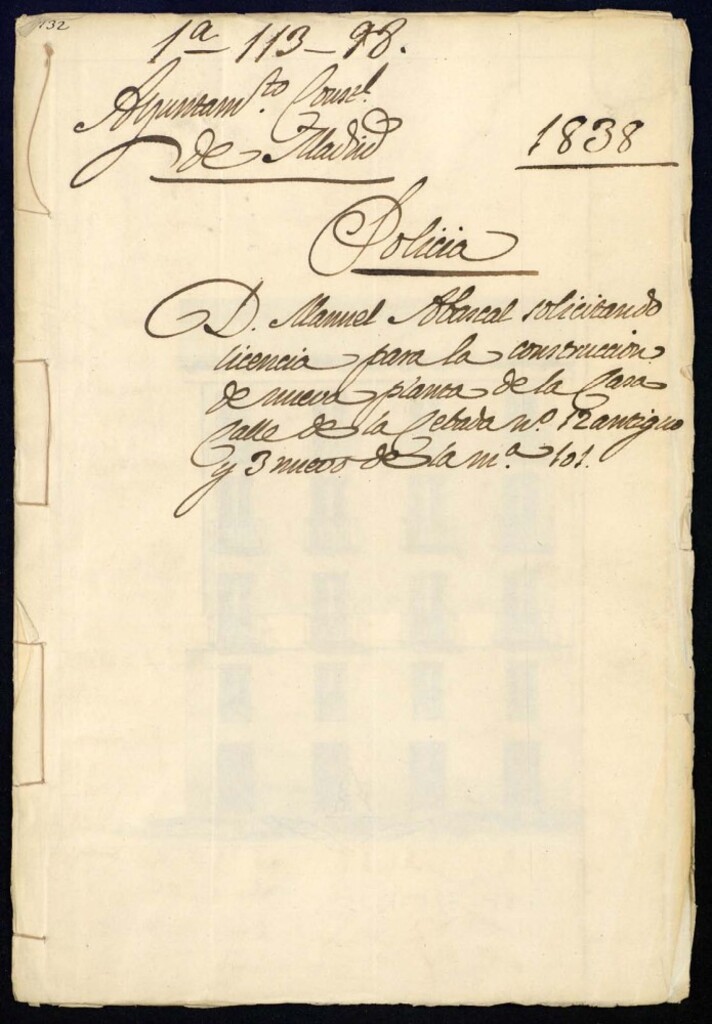 132
1ª 113-98.
Ayuntam.to Const.l
de Madrid
1838
Policia
D. Manuel Abascal solicitando
licencia para la construccion
de nueva planta de la Casa
Calle de la Cebada nº. 12 antiguo
y 3 nuevo de la mª. 101.